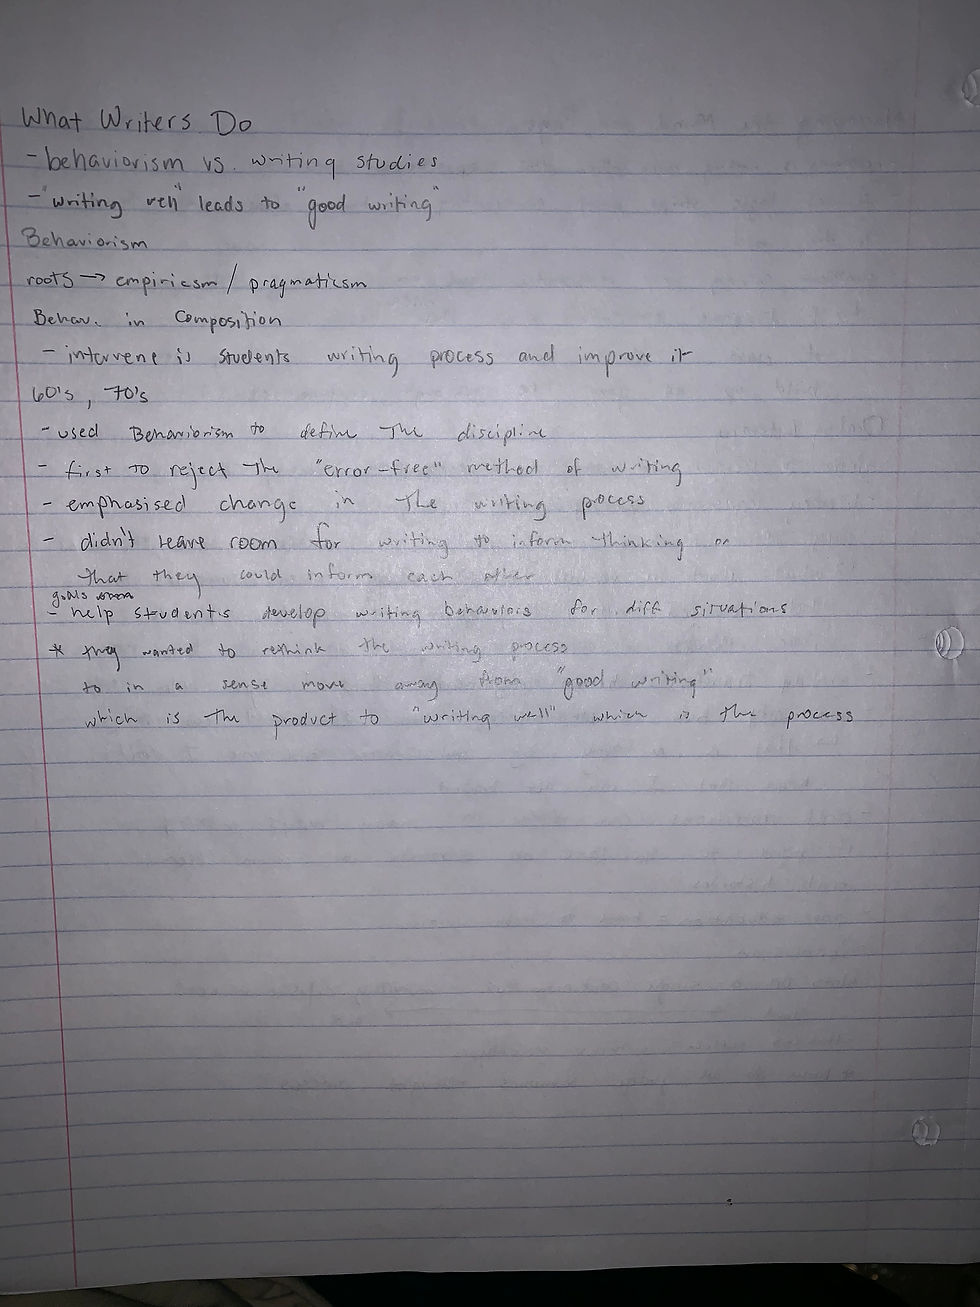 What Writers Do
- behaviorism vs. writing studies
- "writing well" leads to "good writing"
Behaviorism
roots → empiricsm / pragmaticsm
Behav. in Composition
- intervene is students writing process and improve it
60's, 70's
- used Behaviorism to define the discipline
- first to reject the "error-free" method of writing
- emphasised change in the writing process
- didn't leave room for writing to inform thinking or
that they could inform each other
goals
- help students develop writing behaviors for diff situations
* they wanted to rethink the writing process
to in a sense move away from "good writing"
which is the product to "writing well" which is the process